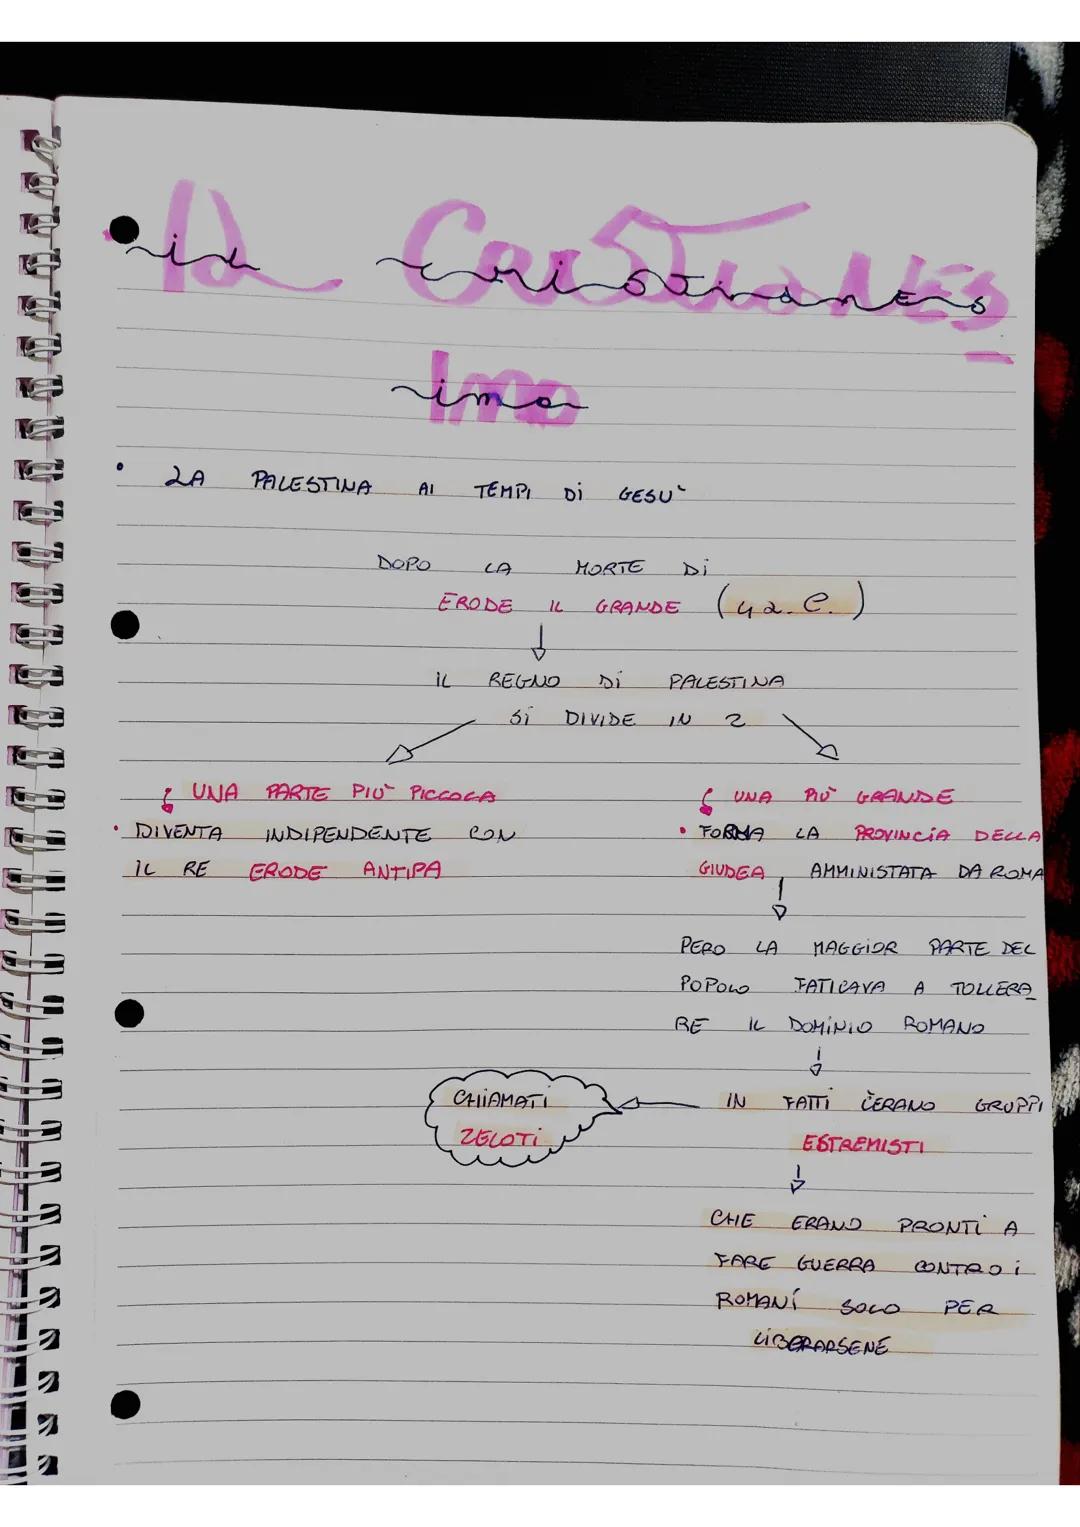 il Cristianes
imo
• LA PALESTINA AI TEMPI Di GESU`
DOPO LA MORTE Di
ERODE IL GRANDE (4 a.C.)
IL REGNO Di PALESTINA
Si DIVIDE IN 2
UNA PARTE PIU` PICCOLA
• DIVENTA INDIPENDENTE CON
IL RE ERODE ANTIPA
UNA PIU` GRANDE
• FORMA LA PROVINCIA DELLA
GIUDEA, AMMINISTATA DA ROMA
PERO LA MAGGIOR PARTE DEL
POPOLO FATICAVA A TOLLERA_
RE IL DOMINIO ROMANO
IN FATTI C'ERANO GRUPPI
ESTREMISTI
CHIAMATI
ZELOTI
CHE ERANO PRONTI A
FARE GUERRA CONTRO i
ROMANI SOLO PER
LIBERARSENE